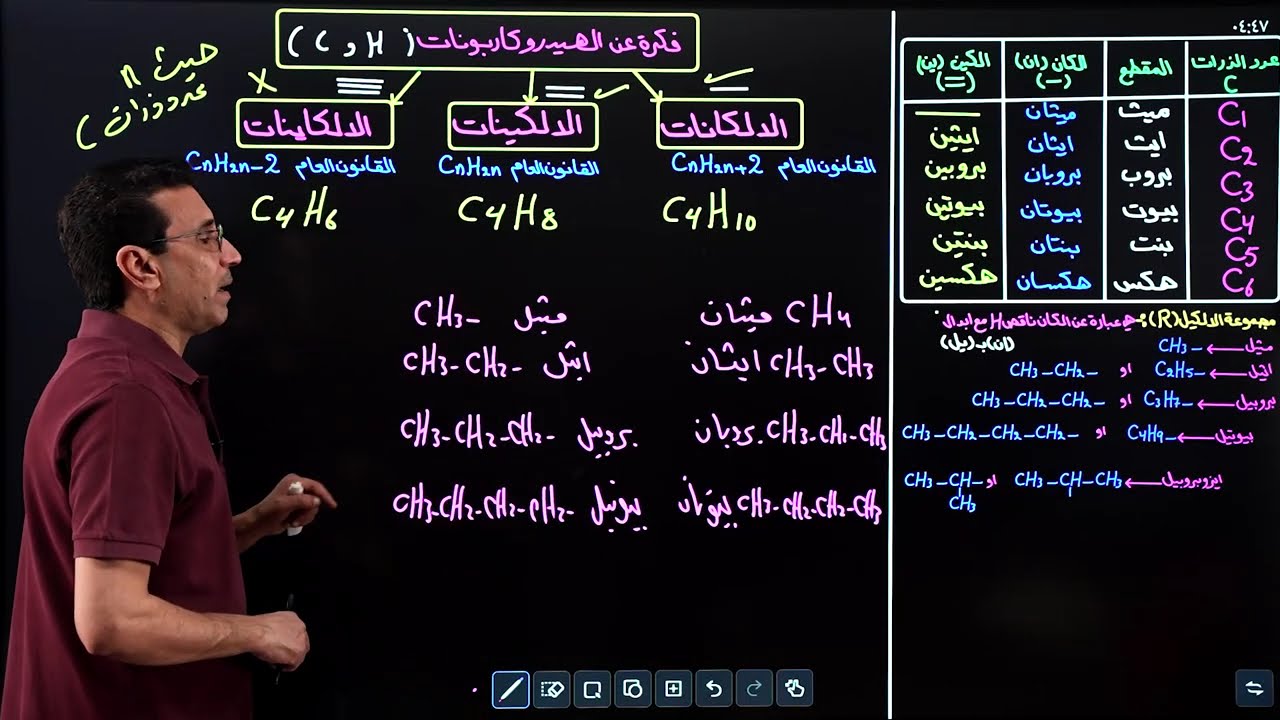 ٠٤:٤٧
فكرة عن الهيدروكاربونات (C و H)
حيث n
عدد ذرات C
الالكانات
الالكينات
الالكاينات
القانون العام CnH2n+2
القانون العام CnH2n
القانون العام CnH2n-2
C4H10
C4H8
C4H6
CH4 ميثان
CH3- مثيل
CH3-CH3 ايثان
CH3-CH2- اثيل
CH3-CH2-CH3 بروبان
CH3-CH2-CH2- بروبيل
CH3-CH2-CH2-CH3 بيوتان
CH3-CH2-CH2-CH2- بيوتيل
عدد الذرات C
المقطع
الكان (ان) (–)
الكين (ين) (=)
C1 ميث ميثان —
C2 ايث ايثان ايثين
C3 بروب بروبان بروبين
C4 بيوت بيوتان بيوتين
C5 بنت بنتان بنتين
C6 هكس هكسان هكسين
مجموعة الالكيل (R):- هي عبارة عن الكان ناقص H مع ابدال
(ان) بـ (يل)
مثيل ← CH3 –
اثيل ← C2H5– او CH3 –CH2 –
بروبيل ← C3H7– او CH3 –CH2 –CH2 –
بيوتيل ← C4H9– او CH3 –CH2 –CH2 –CH2 –
ايزوبروبيل ← CH3 –CH –CH3 او CH3 –CH–
CH3